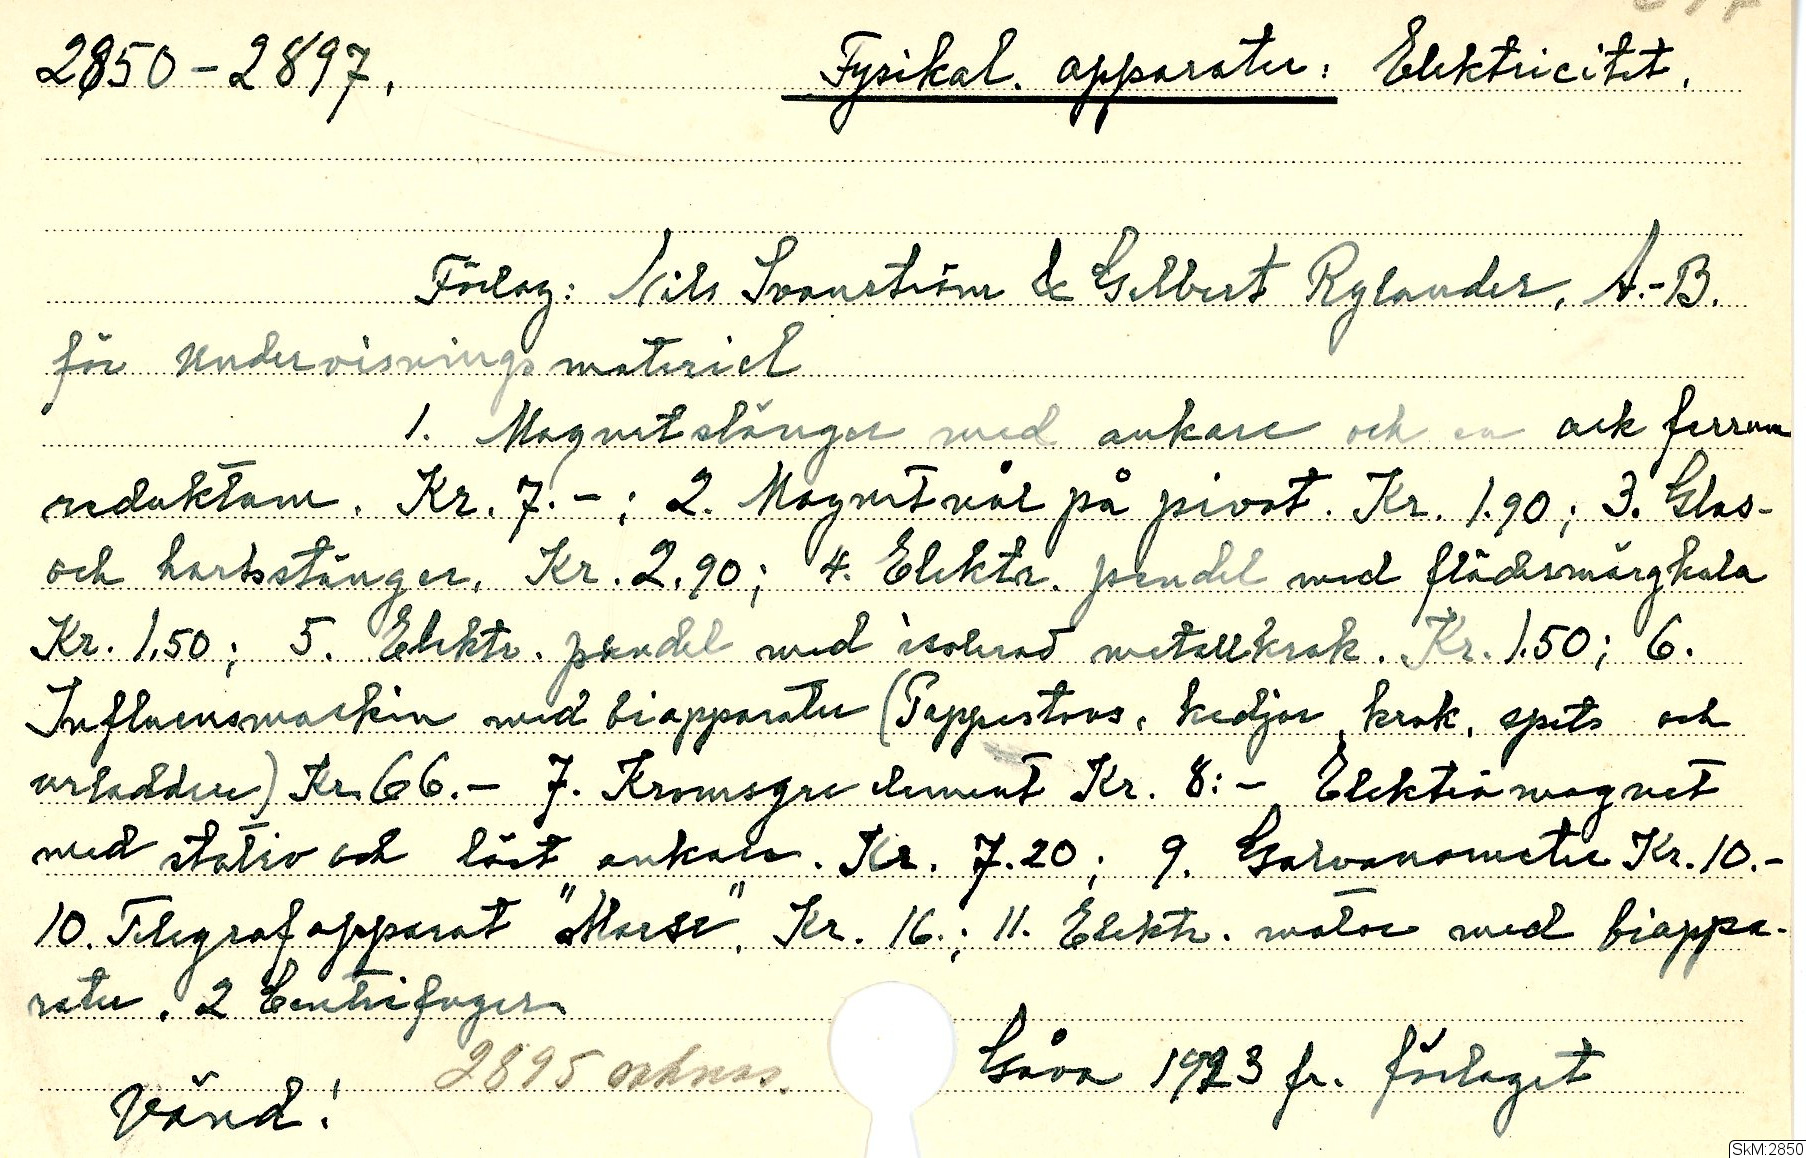 2850-2897.
Fysikal. apparater: Elektricitet.
Förlag: Nils Svanström & Gilbert Rylander, A.-B.
för Undervisningsmateriel
1. Magnetstänger med ankare och en ask ferrum
reduktum. Kr. 7.-; 2. Magnetnål på pivot. Kr. 1.90; 3. Glas-
och hartsstänger. Kr. 2.90; 4. Elektr. pendel med flädermärgkula
Kr. 1.50; 5. Elektr. pendel med isolerad metallkrok. Kr. 1.50; 6.
Influensmaskin med biapparater (Papperstovs, kedjor, krok, spets och
urladdare) Kr. 66.- 7. Kromsyreelement Kr. 8:- Elektromagnet
med stativ och löst ankare. Kr. 7.20; 9. Galvanometer Kr. 10.-
10. Telegrafapparat "Morse". Kr. 16.; 11. Elektr. motor med biappa-
rater. 2 Centrifuger.
Gåva 1923 fr. förlaget
2895 saknas.
Vänd!
SkM:2850